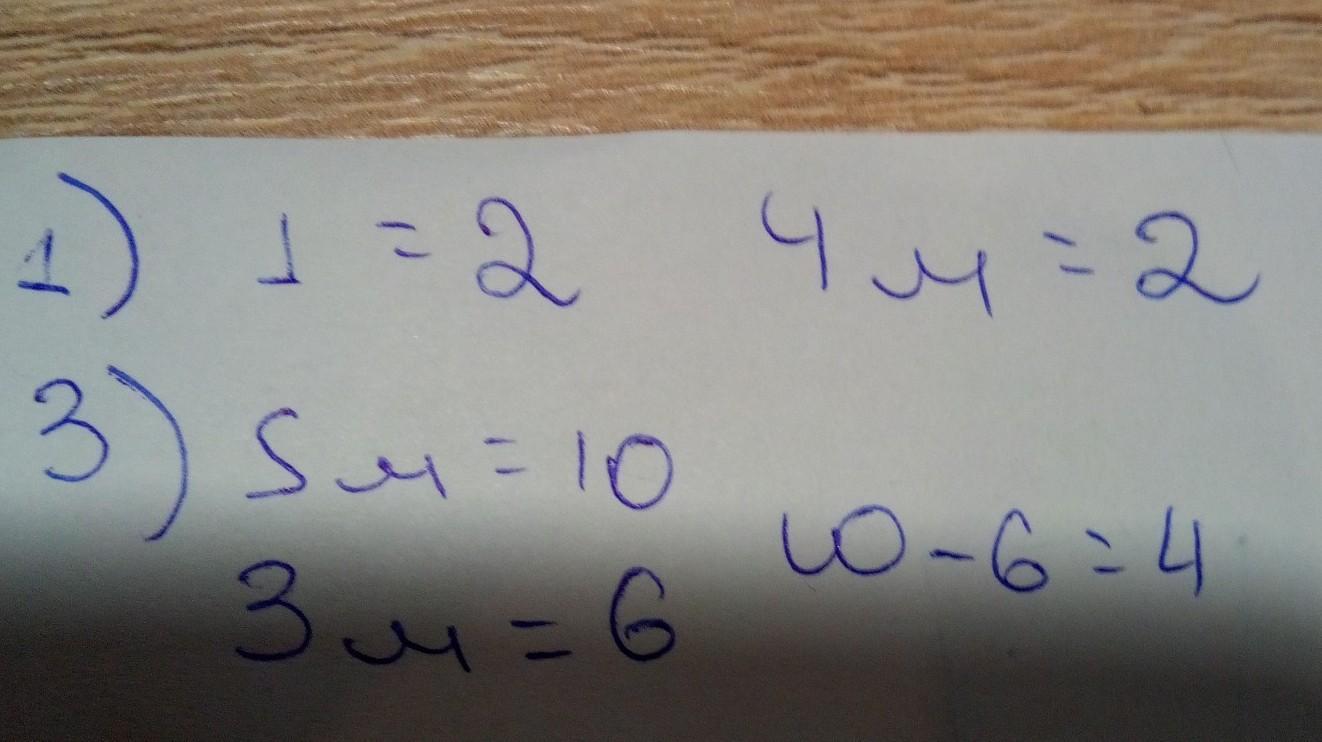 1) 1 = 2 4 м = 2
3) 5 м = 10
10 - 6 = 4
3 м = 6